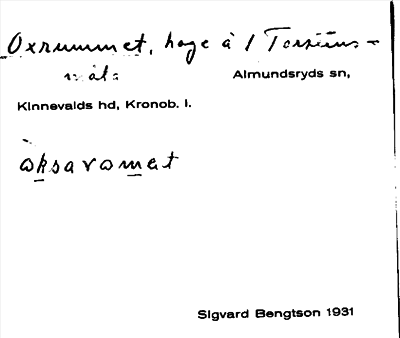 Oxrummet, hage à 1 Torsens-
måla Almundsryds sn,
Kinnevalds hd, Kronob. l.
òksarωmet
Sigvard Bengtson 1931